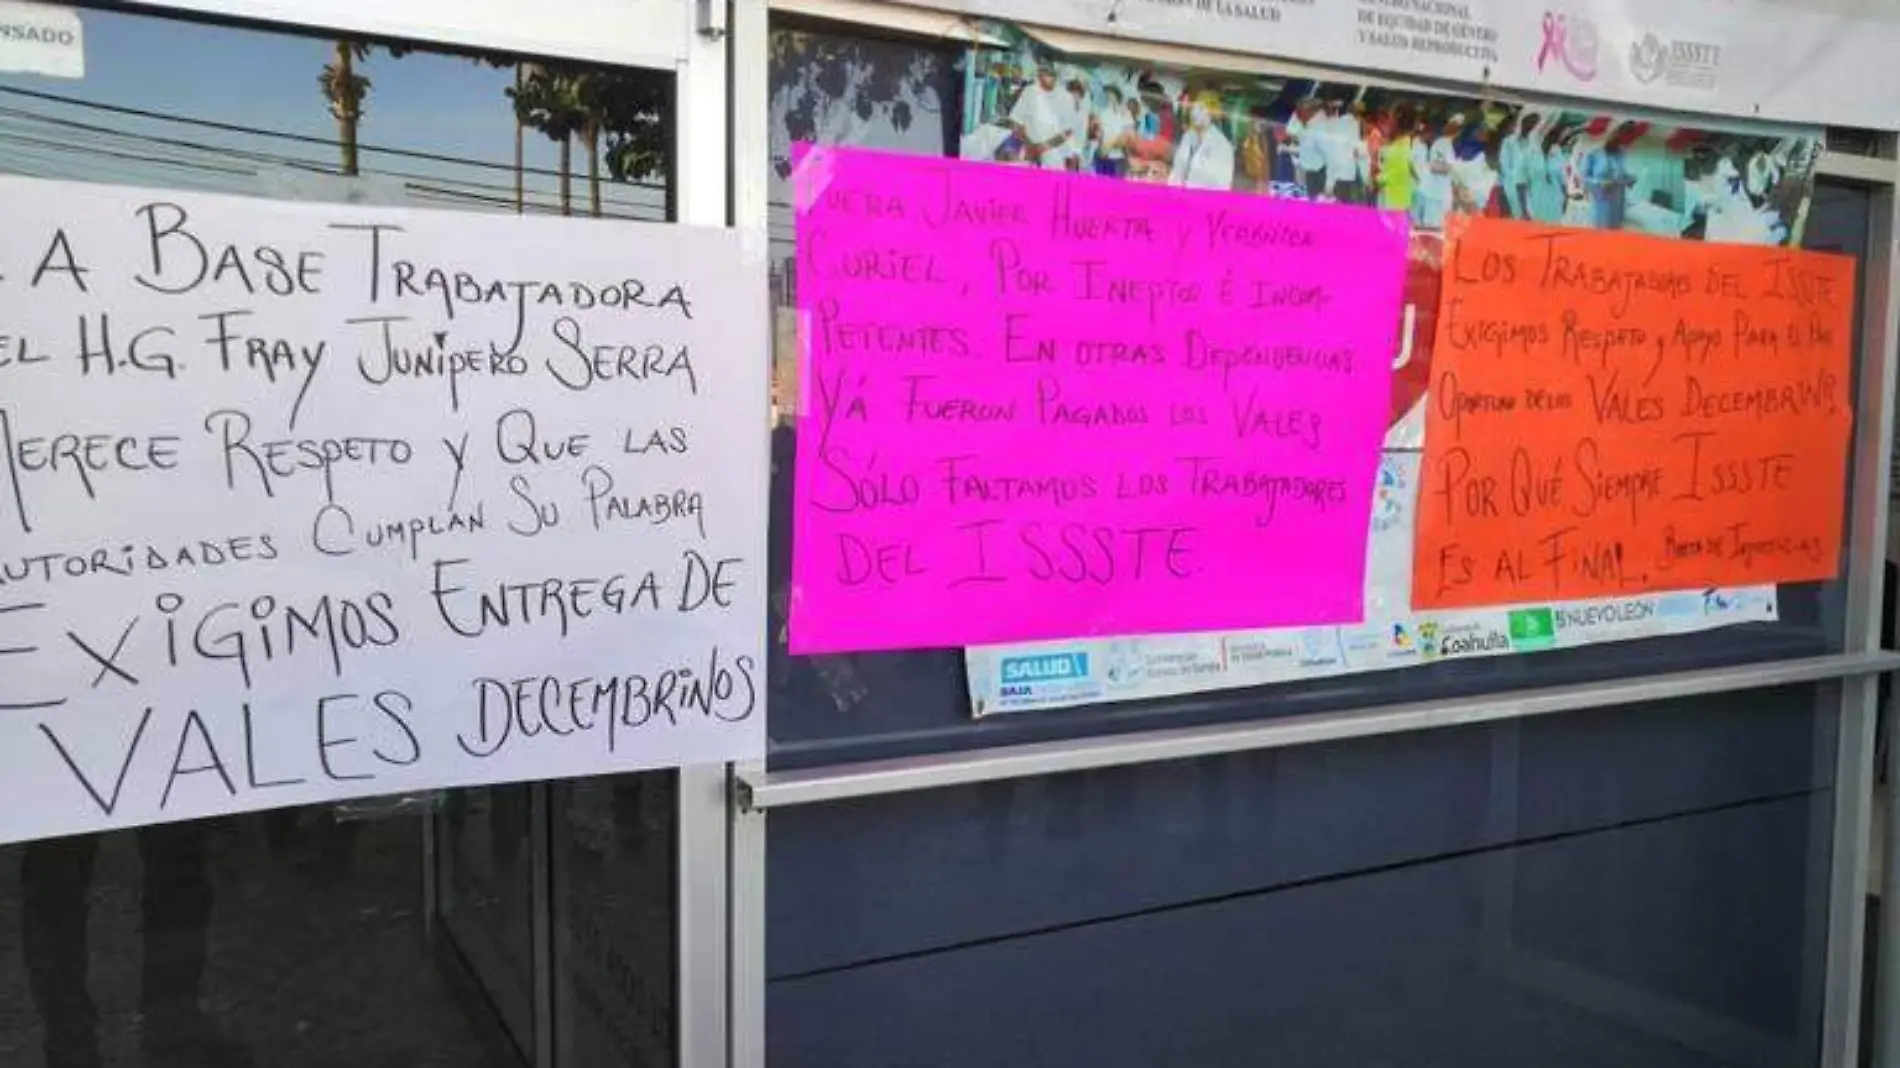 NSADO
A BASE TRABAJADORA
EL H.G. FRAY JUNÍPERO SERRA
MERECE RESPETO Y QUE LAS
AUTORIDADES CUMPLAN SU PALABRA
EXIGIMOS ENTREGA DE
VALES DECEMBRINOS
FUERA JAVIER HUERTA Y VERÓNICA
CURIEL, POR INEPTOS É INCOM-
PETENTES. EN OTRAS DEPENDENCIAS
YÁ FUERON PAGADOS LOS VALES
SÓLO FALTAMOS LOS TRABAJADORES
DEL ISSSTE.
LOS TRABAJADORES DEL ISSSTE
EXIGIMOS RESPETO y APOYO PARA EL
OPORTUNO DE LOS VALES DECEMBRINOS
POR QUÉ SIEMPRE ISSSTE
ES AL FINAL. BASTA DE INJUSTICIAS
DE LA SALUD
CENTRO NACIONAL
DE EQUIDAD DE GÉNERO
Y SALUD REPRODUCTIVA
ISSSTE
SALUD
BAJA
Coahuila
NUEVO LEÓN